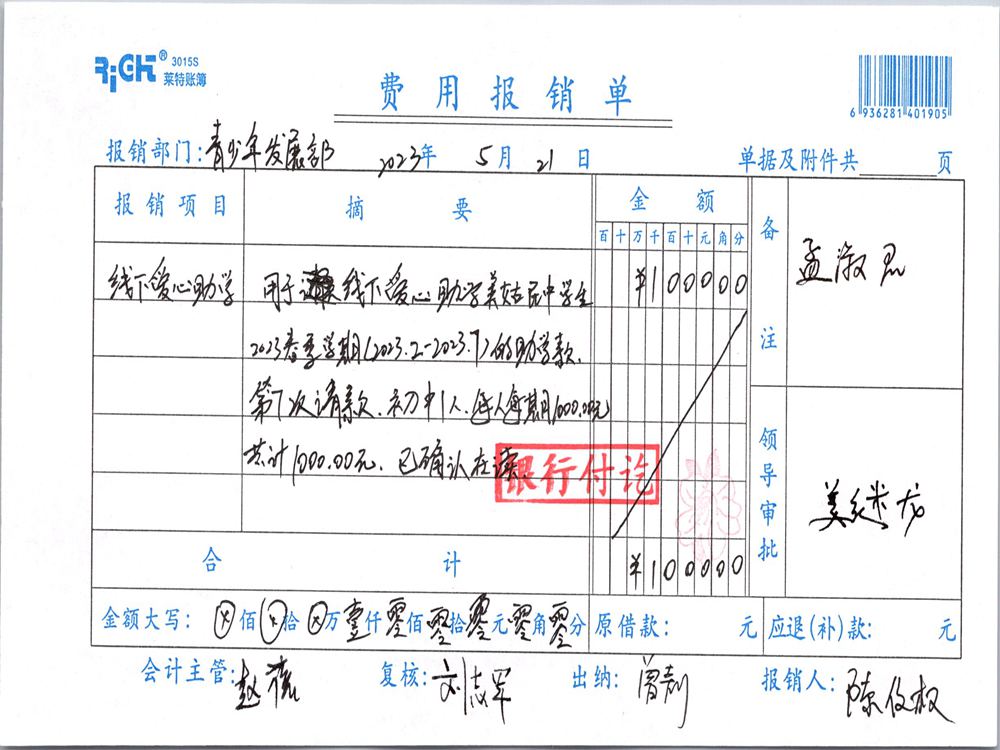 RiGHT® 3015S
莱特账簿
费用报销单
6 936281 401905
报销部门：青少年发展部 2023年 5月 21日 单据及附件共 页
报销项目 摘要 金额 备注
百十万千百十元角分
线下爱心助学 用于 线下爱心助学美姑民中学生 ¥100000 孟淑
2023春季学期(2023.2-2023.7)的助学款.
第1次请款.初中1人.每人每期1000.00元
共计1000.00元.已确认在读.
银行付讫
领导审批 姜继龙
合计 ¥100000
金额大写：ⓧ佰ⓧ拾ⓧ万壹仟零佰零拾零元零角零分 原借款： 元 应退(补)款： 元
会计主管：赵 复核：刘志军 出纳：曾 报销人：陈俊权